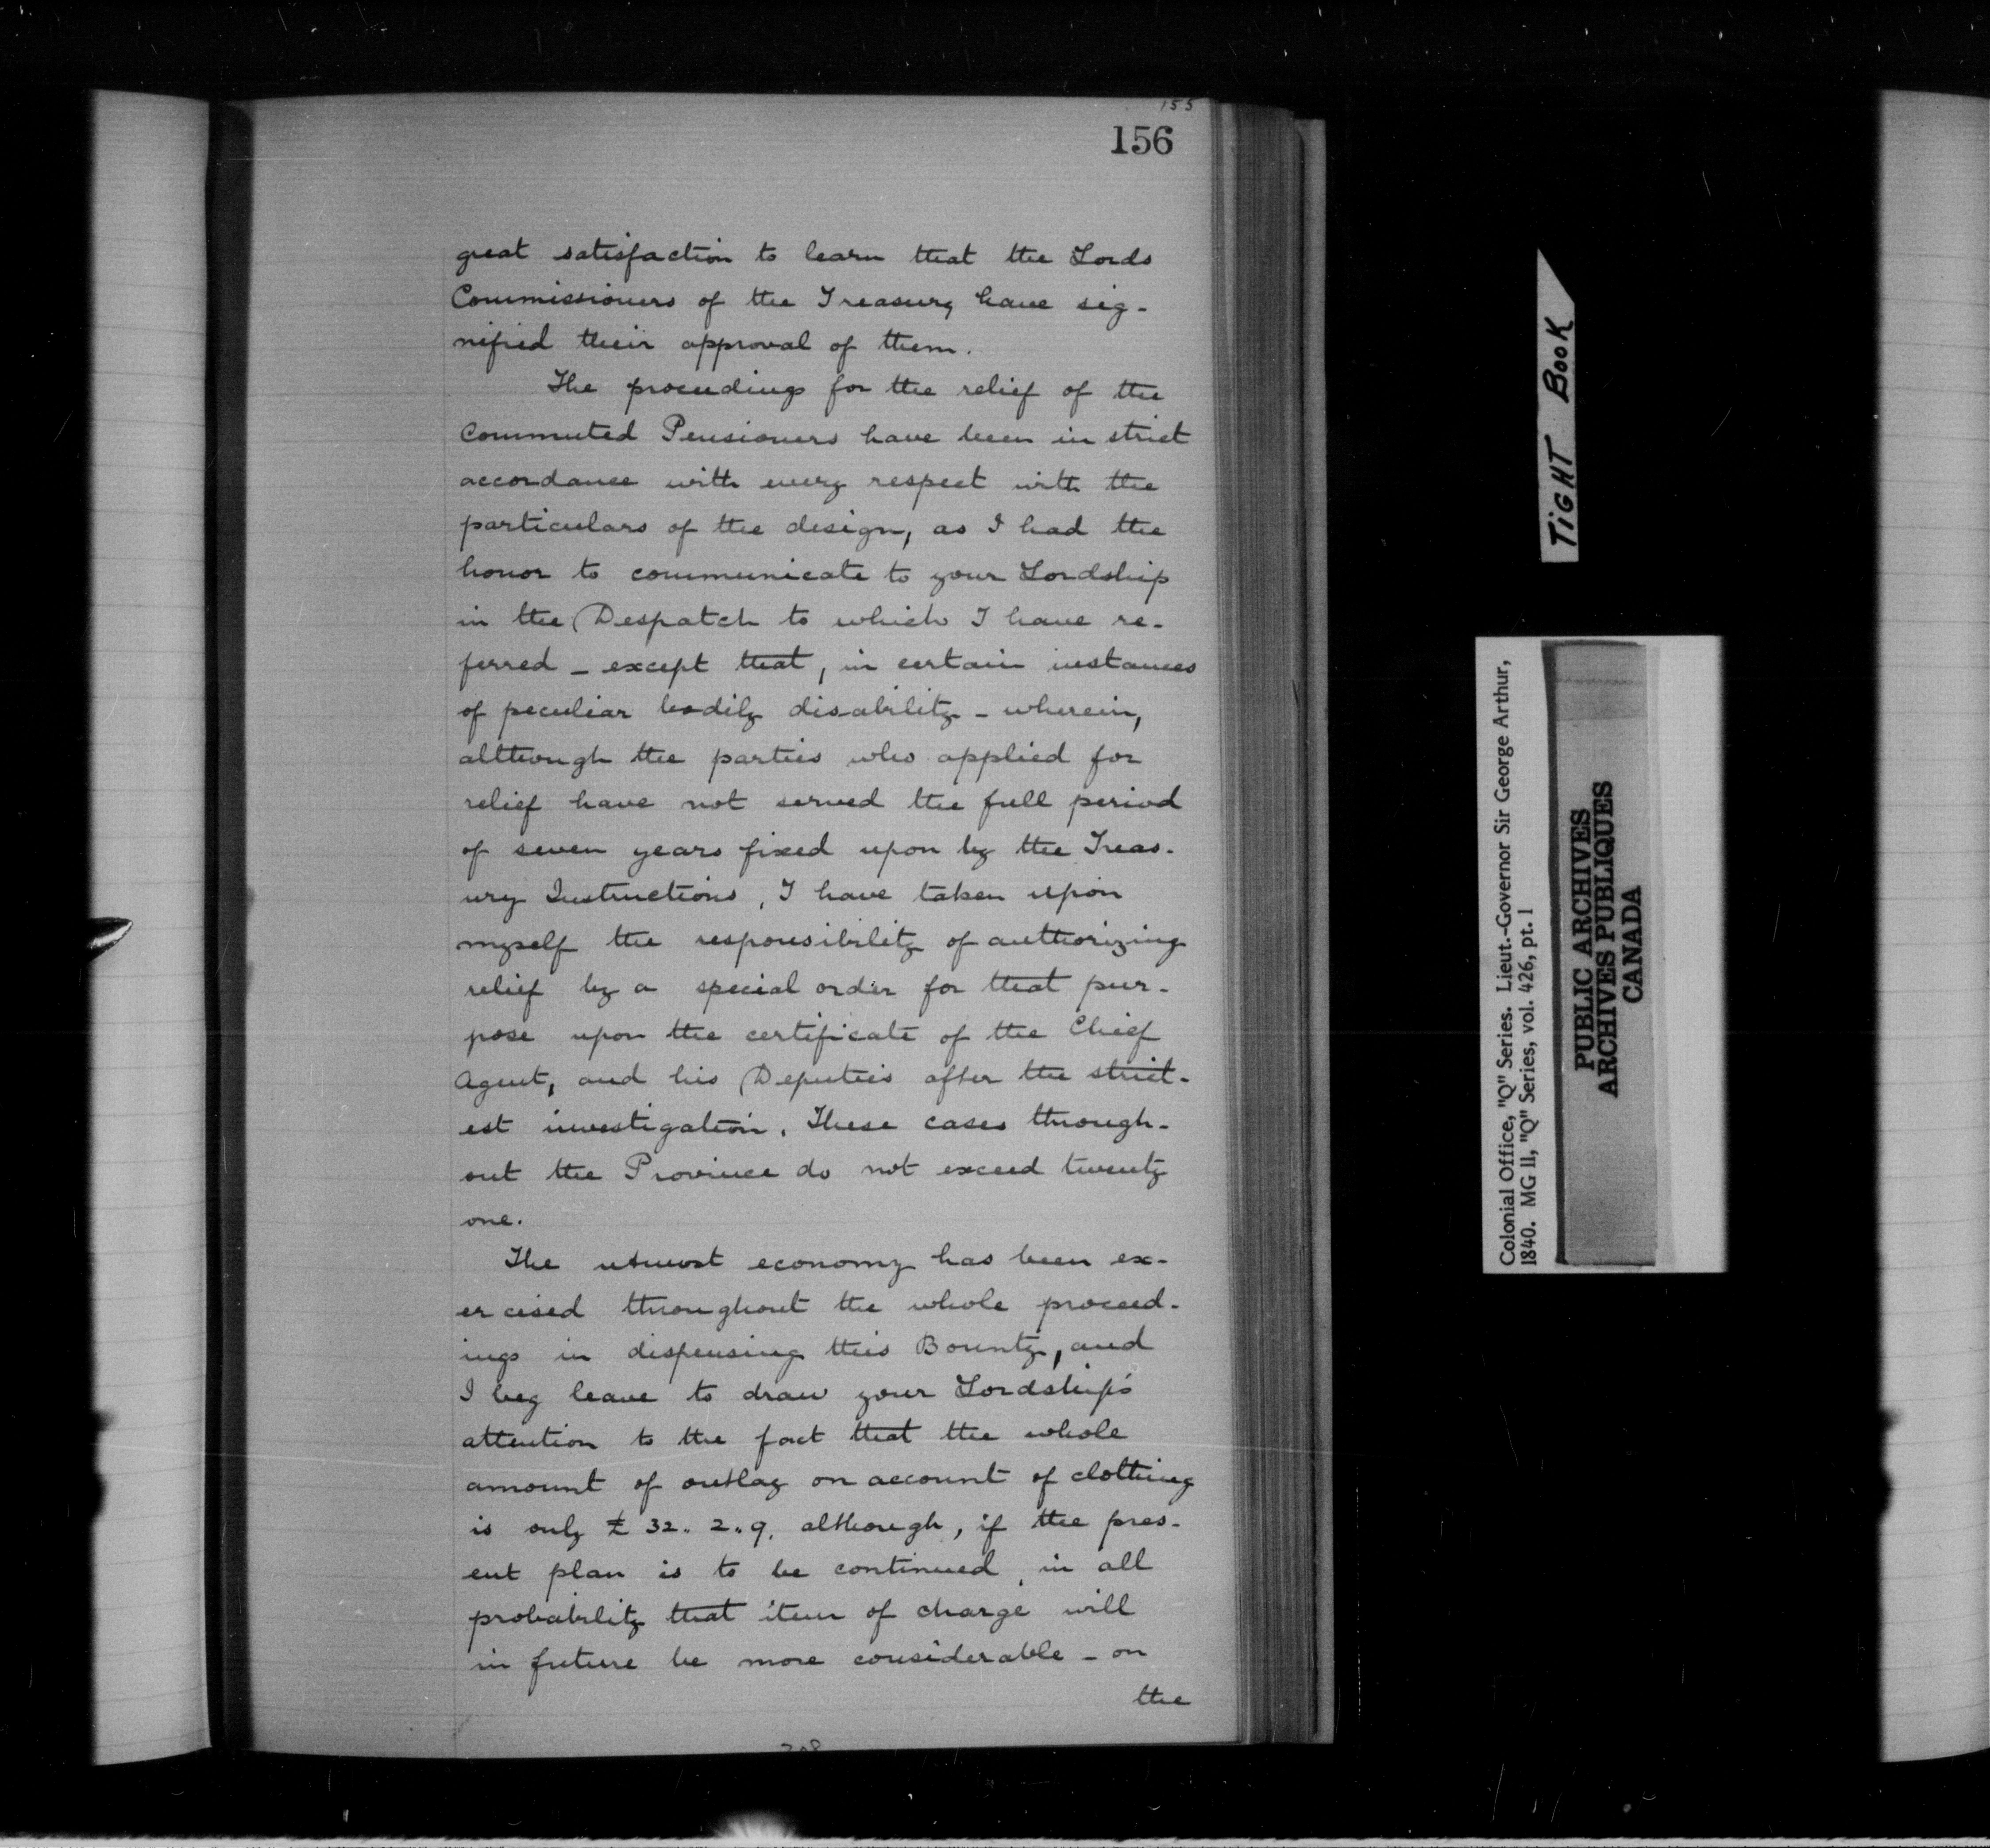 155
156
great satisfaction to learn that the Lords
Commissioners of the Treasury have sig-
nified their approval of them.
The proceedings for the relief of the
Commuted Pensioners have been in strict
accordance with every respect with the
particulars of the design, as I had the
honor to communicate to your Lordship
in the Despatch to which I have re-
ferred - except that, in certain instances
of peculiar bodily disability - wherein,
although the parties who applied for
relief have not served the full period
of seven years fixed upon by the Treas-
ury Instructions, I have taken upon
myself the responsibility of authorizing
relief by a special order for that pur-
pose upon the certificate of the Chief
Agent, and his Deputies after the strict-
est investigation. These cases through-
out the Province do not exceed twenty
one.
The utmost economy has been ex-
ercised throughout the whole proceed-
ings in dispensing this Bounty, and
I beg leave to draw your Lordship's
attention to the fact that the whole
amount of outlay on account of clothing
is only £ 32.. 2..9. although, if the pres-
ent plan is to be continued, in all
probability that item of charge will
in future be more considerable - on
the
TIGHT BOOK
Colonial Office, "Q" Series. Lieut.-Governor Sir George Arthur,
1840. MG 11, "Q" Series, vol. 426, pt. 1
PUBLIC ARCHIVES
ARCHIVES PUBLIQUES
CANADA